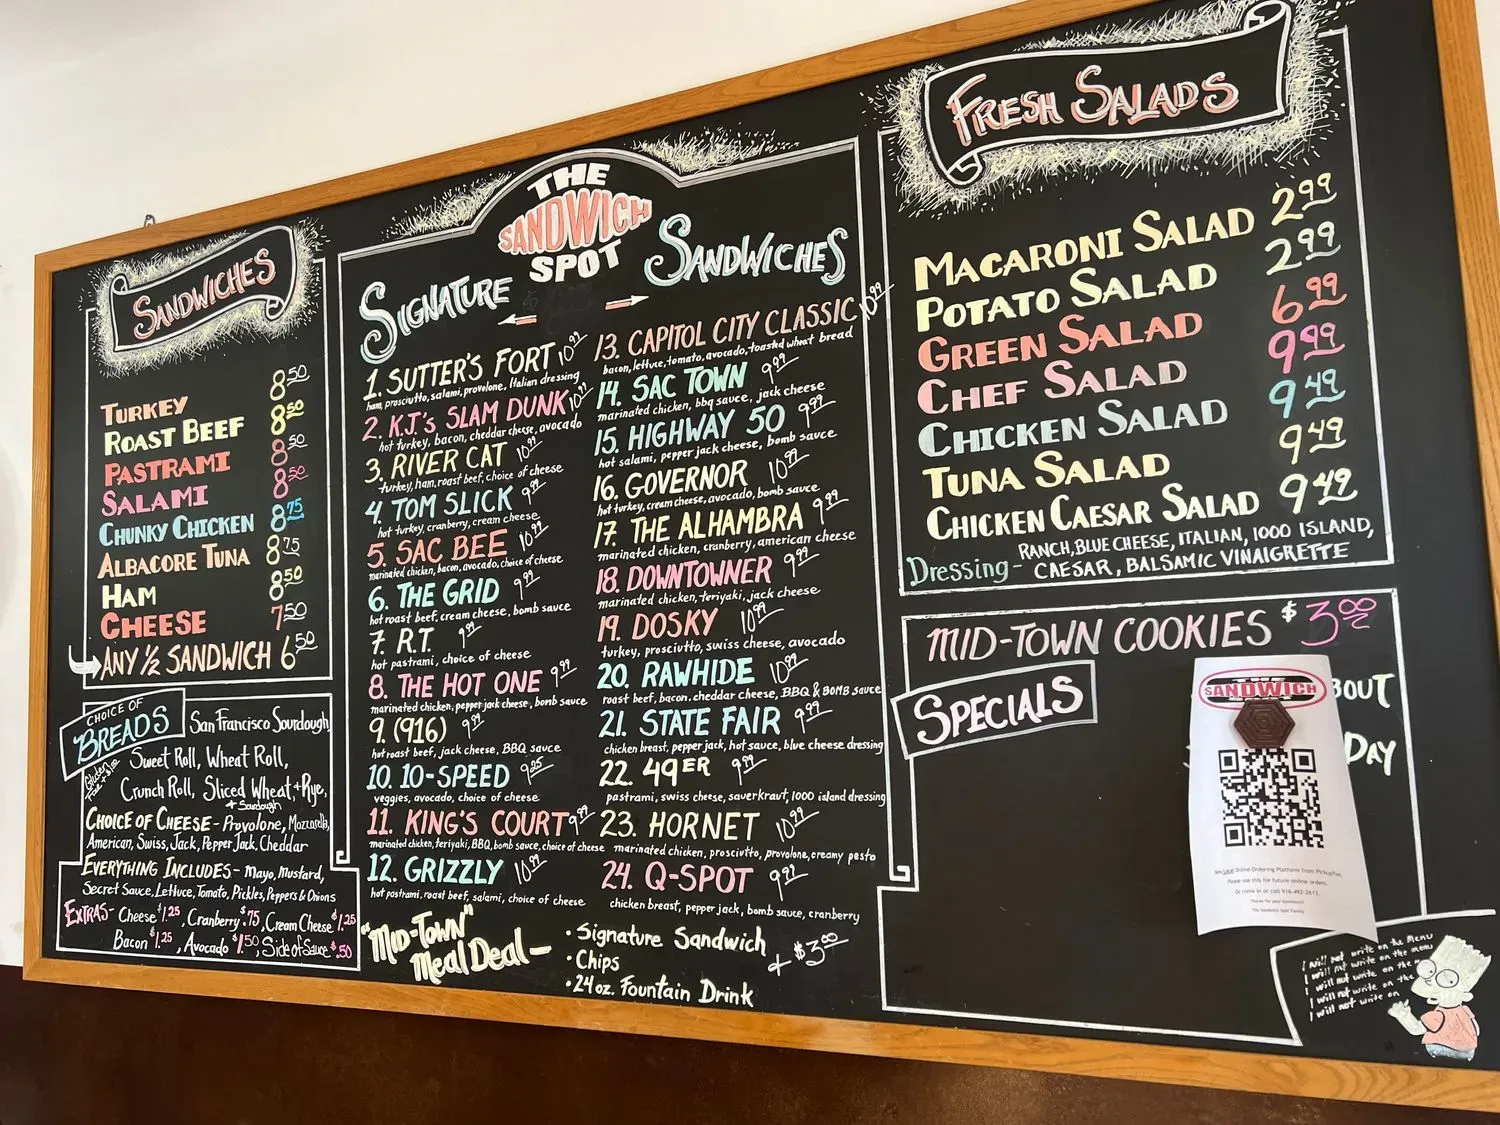 SANDWICHES
TURKEY 8.50
ROAST BEEF 8.50
PASTRAMI 8.50
SALAMI 8.50
CHUNKY CHICKEN 8.75
ALBACORE TUNA 8.75
HAM 8.50
CHEESE 7.50
ANY 1/2 SANDWICH 6.50
CHOICE OF
BREADS
San Francisco Sourdough,
Sweet Roll, Wheat Roll,
Gluten Free
Crunch Roll, Sliced Wheat, + Rye,
+ Sourdough
CHOICE OF CHEESE - Provolone, Mozzarella,
American, Swiss, Jack, Pepper Jack, Cheddar
EVERYTHING INCLUDES - Mayo, Mustard,
Secret Sauce, Lettuce, Tomato, Pickles, Peppers & Onions
EXTRAS - Cheese $1.25, Cranberry $.75, Cream Cheese $1.25
Bacon $1.25, Avocado $1.50, Side of Sauce $.50
THE
SANDWICH
SPOT
SIGNATURE SANDWICHES
1. SUTTER'S FORT 10.99
ham, prosciutto, salami, provolone, Italian dressing
2. KJ's SLAM DUNK 10.99
hot turkey, bacon, cheddar cheese, avocado
3. RIVER CAT 10.99
turkey, ham, roast beef, choice of cheese
4. TOM SLICK 9.99
hot turkey, cranberry, cream cheese
5. SAC BEE 10.99
marinated chicken, bacon, avocado, choice of cheese
6. THE GRID 9.99
hot roast beef, cream cheese, bomb sauce
7. R.T. 9.99
hot pastrami, choice of cheese
8. THE HOT ONE 9.99
marinated chicken, pepper jack cheese, bomb sauce
9. (916) 9.99
hot roast beef, jack cheese, BBQ sauce
10. 10-SPEED 9.25
veggies, avocado, choice of cheese
11. KING'S COURT 9.99
marinated chicken, teriyaki, BBQ, bomb sauce, choice of cheese
12. GRIZZLY 10.99
hot pastrami, roast beef, salami, choice of cheese
13. CAPITOL CITY CLASSIC 10.99
bacon, lettuce, tomato, avocado, toasted wheat bread
14. SAC TOWN 9.99
marinated chicken, bbq sauce, jack cheese
15. HIGHWAY 50 9.99
hot salami, pepper jack cheese, bomb sauce
16. GOVERNOR 10.99
hot turkey, cream cheese, avocado, bomb sauce
17. THE ALHAMBRA 9.99
marinated chicken, cranberry, american cheese
18. DOWNTOWNER 9.99
marinated chicken, teriyaki, jack cheese
19. DOSKY 10.99
turkey, prosciutto, swiss cheese, avocado
20. RAWHIDE 10.99
roast beef, bacon, cheddar cheese, BBQ & BOMB sauce
21. STATE FAIR 9.99
chicken breast, pepper jack, hot sauce, blue cheese dressing
22. 49ER 9.99
pastrami, swiss cheese, sauerkraut, 1000 island dressing
23. HORNET 10.99
marinated chicken, prosciutto, provolone, creamy pesto
24. Q-SPOT 9.99
chicken breast, pepper jack, bomb sauce, cranberry
"MID-TOWN"
Meal Deal -
• Signature Sandwich
• Chips
• 24 oz. Fountain Drink
+ $3.00
FRESH SALADS
MACARONI SALAD 2.99
POTATO SALAD 2.99
GREEN SALAD 6.99
CHEF SALAD 9.99
CHICKEN SALAD 9.49
TUNA SALAD 9.49
CHICKEN CAESAR SALAD 9.49
Dressing - RANCH, BLUE CHEESE, ITALIAN, 1000 ISLAND,
CAESAR, BALSAMIC VINAIGRETTE
MID-TOWN COOKIES $3.00
SPECIALS
BOUT
DAY
SANDWICH
New Local Online Ordering Platform from
Please use this for future online orders.
Or come in or call 916-492-2613.
Thanks for your business!!
The Sandwich Spot Family
I will not write on the menu
I will not write on the menu
I will not write on the m
I will not write on the
I will not write on